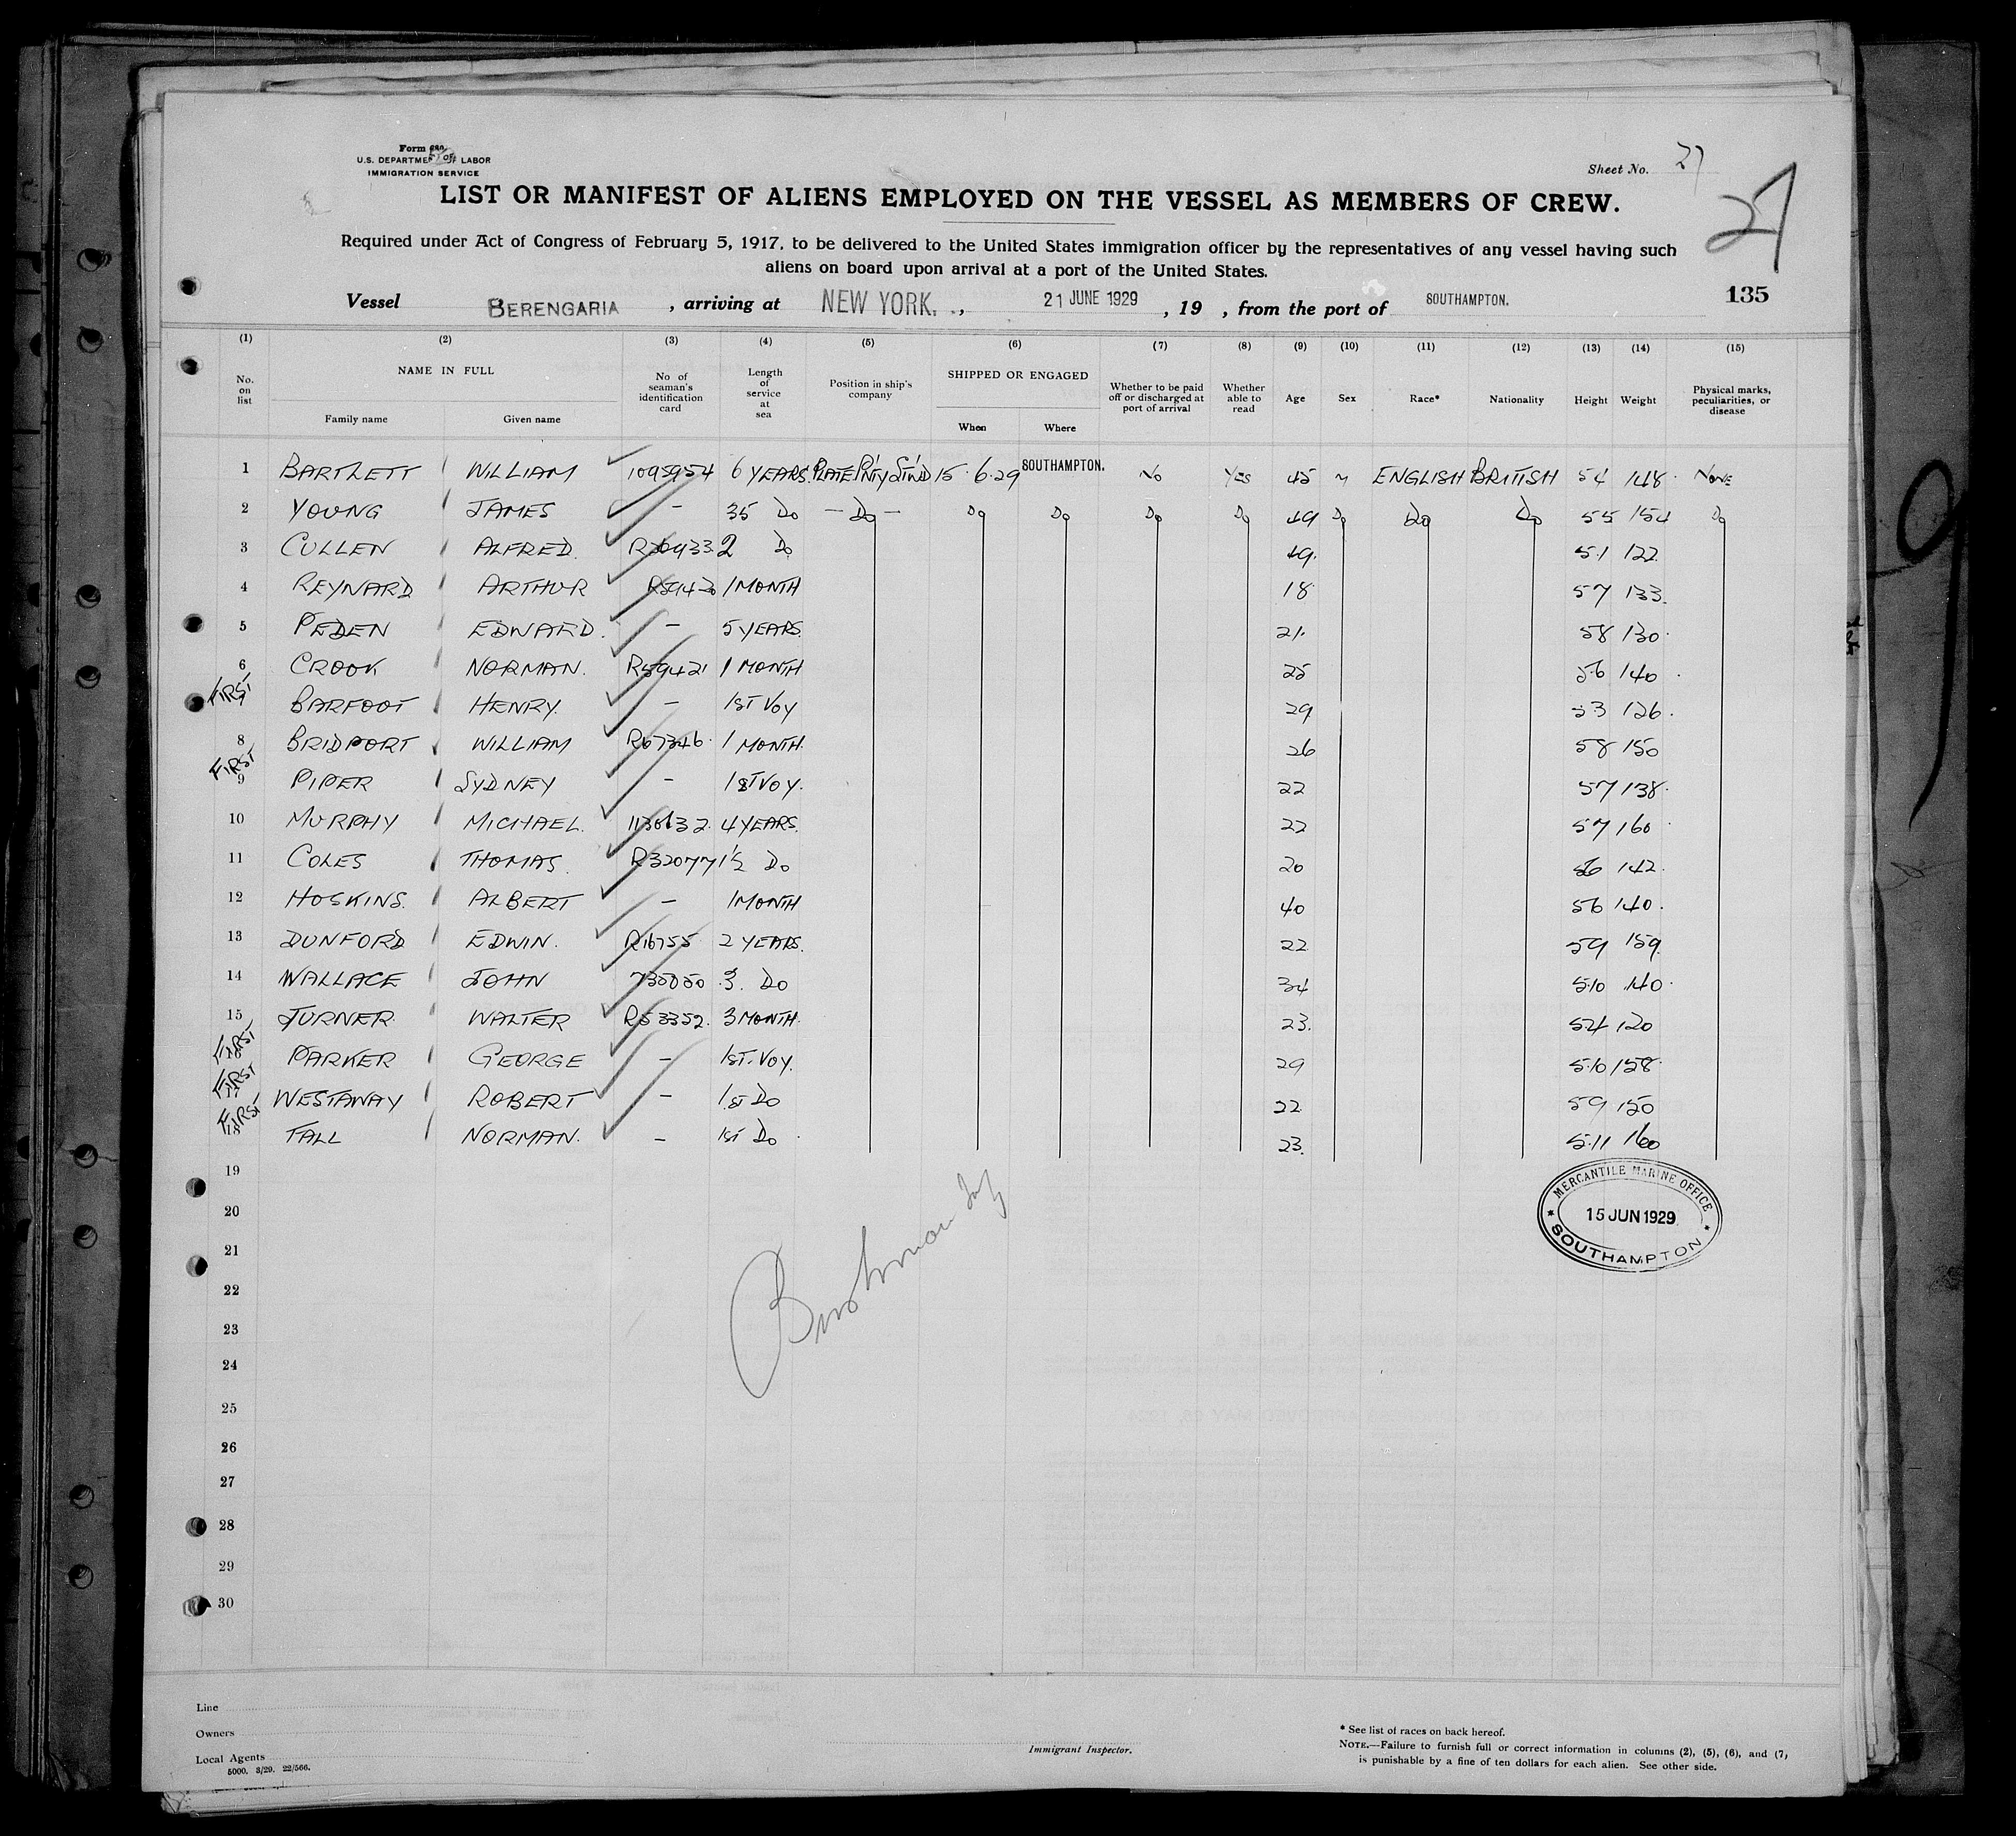 Form 680
U.S. DEPARTMENT OF LABOR
IMMIGRATION SERVICE
Sheet No. 27
27
LIST OR MANIFEST OF ALIENS EMPLOYED ON THE VESSEL AS MEMBERS OF CREW.
Required under Act of Congress of February 5, 1917, to be delivered to the United States immigration officer by the representatives of any vessel having such
aliens on board upon arrival at a port of the United States.
Vessel BERENGARIA, arriving at NEW YORK., 21 JUNE 1929, 19 , from the port of SOUTHAMPTON. 135
(1) (2) (3) (4) (5) (6) (7) (8) (9) (10) (11) (12) (13) (14) (15)
No. on list NAME IN FULL Family name Given name No of seaman's identification card Length of service at sea Position in ship's company SHIPPED OR ENGAGED When Where Whether to be paid off or discharged at port of arrival Whether able to read Age Sex Race* Nationality Height Weight Physical marks, peculiarities, or disease
1 BARTLETT WILLIAM 1095954 6 YEARS. PLATE P'NTY ST'WD 15.6.29 SOUTHAMPTON. No YES 45 M ENGLISH BRITISH 54 148. NONE
2 YOUNG JAMES - 35 Do - Do - Do Do Do Do 49 Do Do Do 55 154 Do
3 CULLEN ALFRED. R30933 2 Do 49. 5.1 122.
4 REYNARD ARTHUR 1 MONTH 18. 57 133.
5 PEDEN EDWARD. - 5 YEARS. 21. 58 130.
6 CROOK NORMAN. R59421 1 MONTH 25 56 140.
FIRST 7 BARFOOT HENRY. - 1ST VOY 29 53 126.
8 BRIDPORT WILLIAM R67346. 1 MONTH. 26 58 150
FIRST 9 PIPER SYDNEY - 1ST VOY. 22 57 138.
10 MURPHY MICHAEL. 1130632. 4 YEARS. 22 57 160
11 COLES THOMAS. R32077 1½ Do 20 56 142.
12 HOSKINS. ALBERT - 1 MONTH 40 56 140.
13 DUNFORD EDWIN. R16755 2 YEARS. 22 59 159.
14 WALLACE JOHN 735050 3. Do 34 5.10 140.
15 TURNER WALTER R53352. 3 MONTH. 23. 54 120
FIRST 16 PARKER GEORGE - 1ST. VOY. 29 5.10 158.
FIRST 17 WESTAWAY ROBERT - 1ST Do 22 59 150
FIRST 18 TALL NORMAN. - 1ST Do. 23. 5.11 160
19
20
21
22
23
24
25
26
27
28
29
30
MERCANTILE MARINE OFFICE
15 JUN 1929
SOUTHAMPTON
Line
Owners
Local Agents
5000. 3/29. 22/566.
Immigrant Inspector.
* See list of races on back hereof.
NOTE.—Failure to furnish full or correct information in columns (2), (5), (6), and (7,
is punishable by a fine of ten dollars for each alien. See other side.